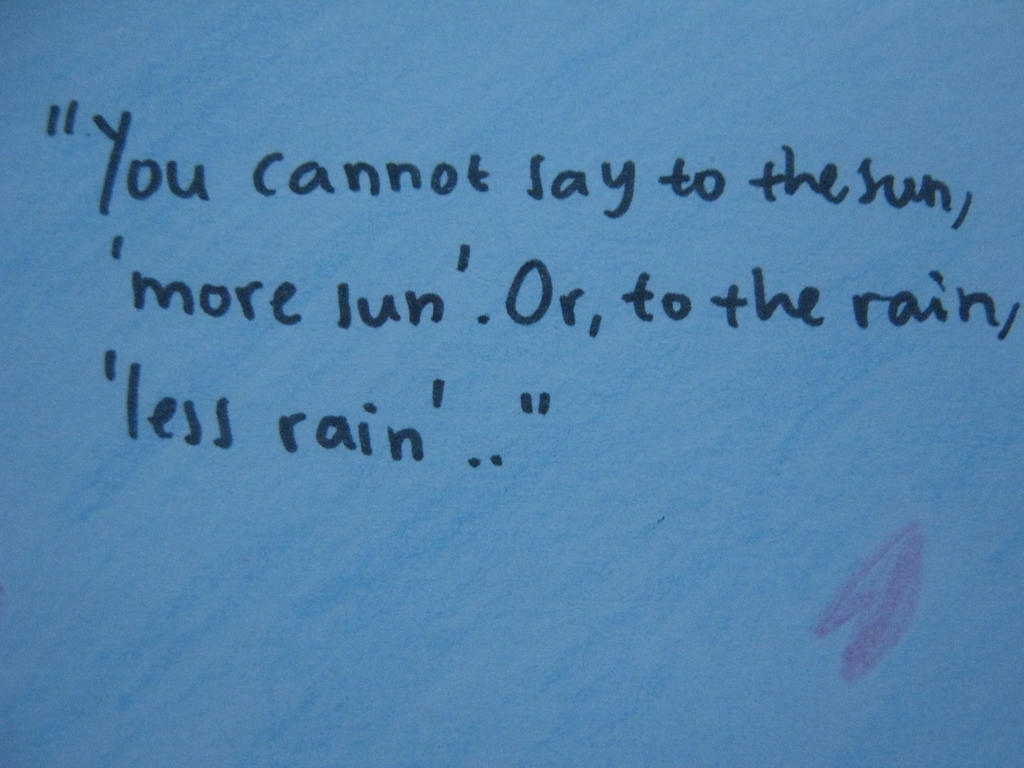 "You cannot say to the sun,
'more sun'. Or, to the rain,
'less rain'.."